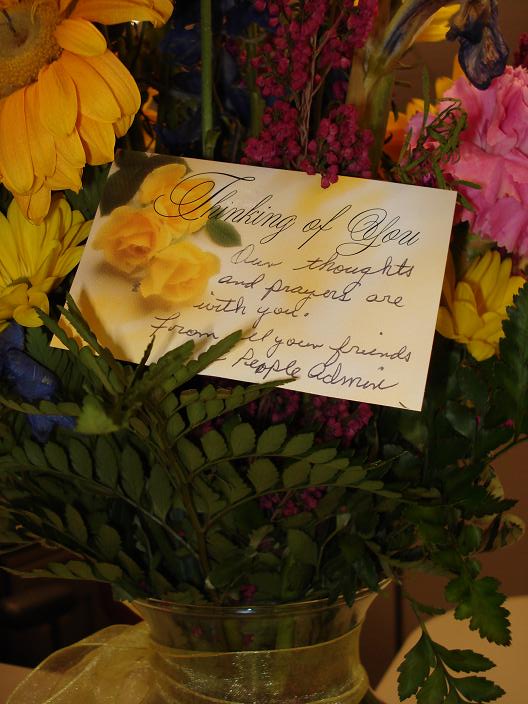 Thinking of You
Our thoughts
and prayers are
with you.
From all your friends
- People Admin